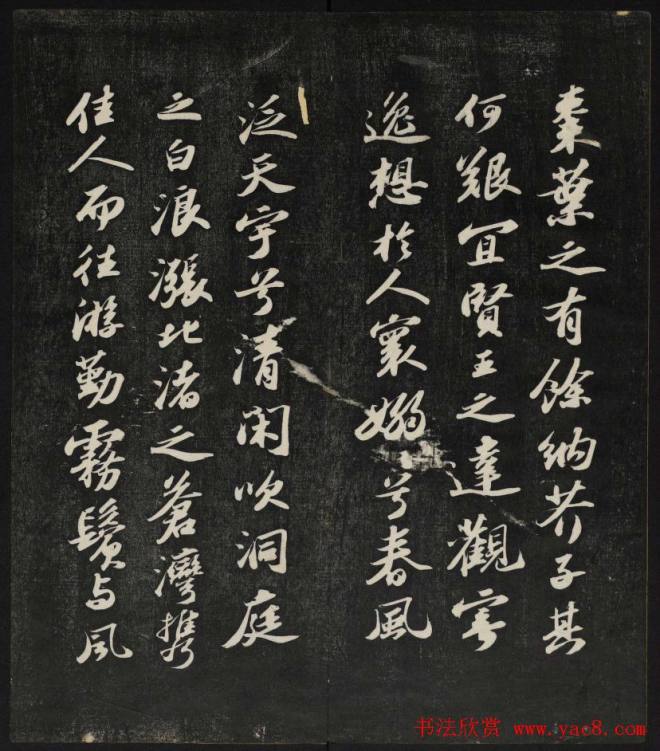 棗葉之有餘納芥子其
何艱宜賢王之達觀寄
逸想於人寰嫋兮春風
泛天宇兮清閑吹洞庭
之白浪漲北渚之蒼灣攜
佳人而往游勤霧鬢与風
书法欣赏 www.yac8.com